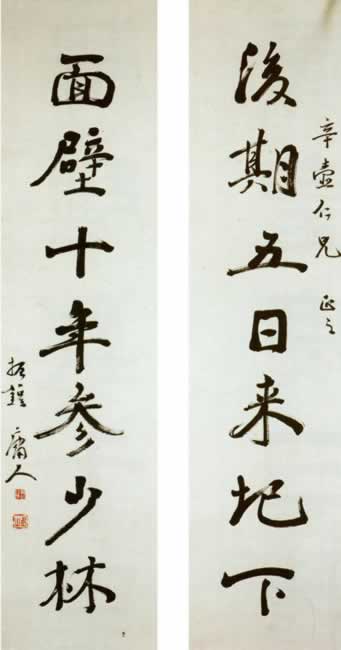 後期五日来圯下
辛壺仁兄 正之
面壁十年参少林
庸人